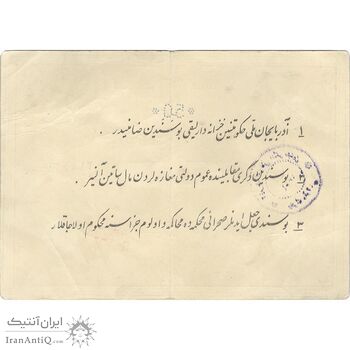 *50*
١ آذربایجان ملی حکومتنین خزانه داریلیقی بوسندین ضامنیدیر .
٢ بوسندین ذکری مقابلینده عموم دولتی مغازه لردن مال ساتین آلنیر .
٣ بوسندی جعل ایدنلر صحرائی محکمه ده محاکمه و اولوم جزاسنه محکوم اولاجاقلار
ایران آنتیک
IranAntiQ.com